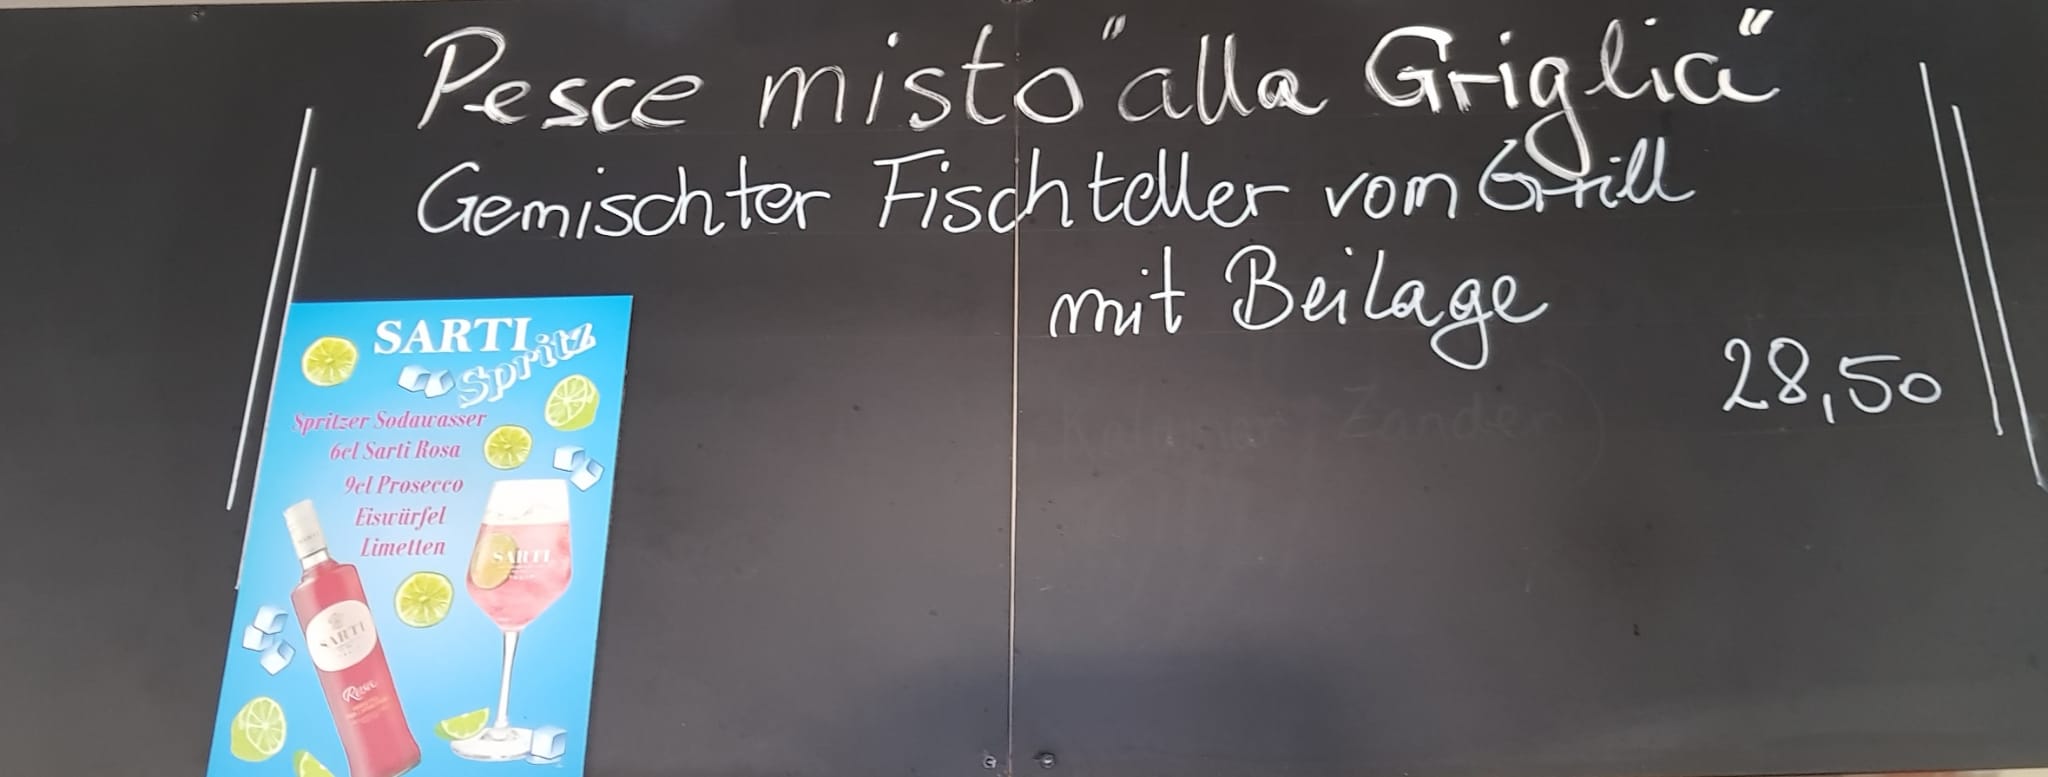 Pesce misto "alla Griglia"
Gemischter Fischteller vom Grill
mit Beilage
28,50
Zander)
SARTI
Spritz
Spritzer Sodawasser
6cl Sarti Rosa
9cl Prosecco
Eiswürfel
Limetten
SARTI
SARTI
Rosa